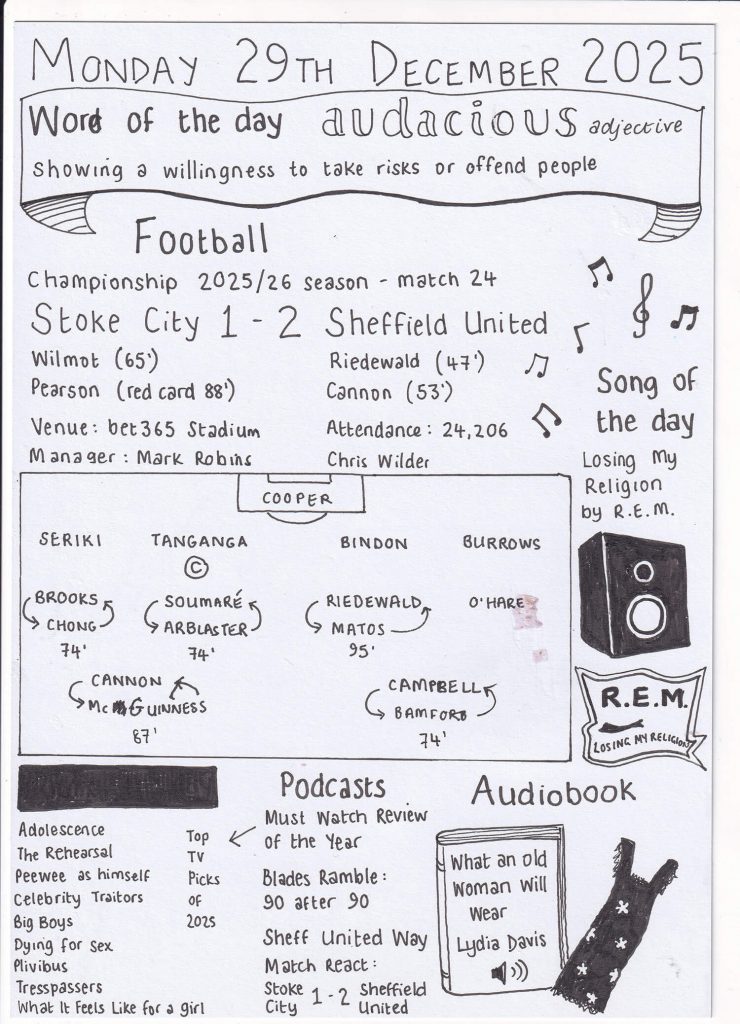 MONDAY 29TH DECEMBER 2025
Word of the day audacious adjective
Showing a willingness to take risks or offend people
Football
Championship 2025/26 season - match 24
Stoke City 1 - 2 Sheffield United
Wilmot (65') Riedewald (47')
Pearson (red card 88') Cannon (53')
Venue: bet365 Stadium Attendance: 24,206
Manager: Mark Robins Chris Wilder
Song of
the day
Losing My
Religion
by R.E.M.
COOPER
SERIKI TANGANGA BINDON BURROWS
©
BROOKS SOUMARÉ RIEDEWALD O'HARE
CHONG ARBLASTER MATOS
74' 74' 95'
CANNON CAMPBELL
McGUINNESS BAMFORD
87' 74'
R.E.M.
LOSING MY RELIGION
Adolescence
The Rehearsal
Peewee as himself
Celebrity Traitors
Big Boys
Dying for Sex
Plivibus
Tresspassers
What It Feels Like for a girl
Top
TV
Picks
of
2025
Podcasts
Must Watch Review
of the Year
Blades Ramble:
90 after 90
Sheff United Way
Match React:
Stoke City 1-2 Sheffield United
Audiobook
What an old
Woman Will
Wear
Lydia Davis